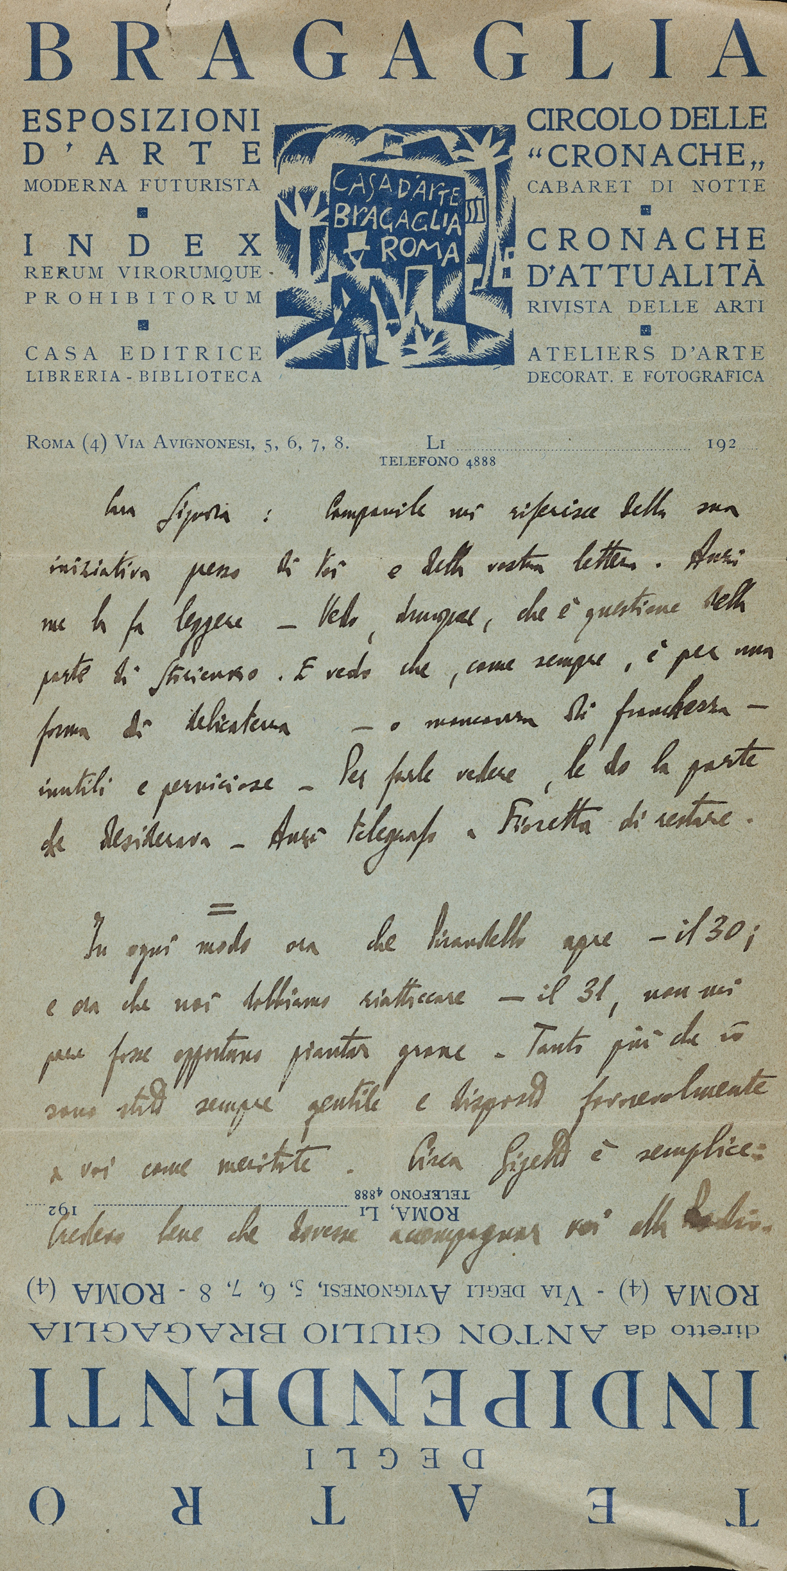 BRAGAGLIA
ESPOSIZIONI
D'ARTE
MODERNA FUTURISTA
INDEX
RERUM VIRORUMQUE -
PROHIBITORUM
CASA EDITRICE
LIBRERIA - BIBLIOTECA
CASA D'ARTE
BRAGAGLIA
ROMA
CIRCOLO DELLE
“CRONACHE„
CABARET DI NOTTE
CRONACHE
D'ATTUALITÀ
RIVISTA DELLE ARTI
ATELIERS D'ARTE
DECORAT. E FOTOGRAFICA
ROMA (4) VIA AVIGNONESI, 5, 6, 7, 8. LI 192
TELEFONO 4888
Cara Signora : Campanile mi riferisce della sua
iniziativa presso di Voi e della vostra lettera. Anzi
me la fa leggere — Vedo, dunque, che è questione della
parte di. E vedo che, come sempre, è per una
forma di delicatezza — o mancanza di franchezza —
inutili e perniciose — Per farle vedere, le do la parte
che desiderava — Anzi telegrafo a Fioretta di restare.
=
In ogni modo ora che Pirandello apre — il 30;
e ora che noi dobbiamo riattaccare — il 31, non mi
pare fosse opportuno piantar grane — Tanto più che io
sono stato sempre gentile e disposto favorevolmente
a voi come meritate. Circa Gigetto è semplice:
Credevo bene che dovesse accompagnar voi alla
TELEFONO 4888
ROMA, LI 192
ROMA (4) - VIA DEGLI AVIGNONESI, 5, 6, 7, 8 - ROMA (4)
diretto da ANTON GIULIO BRAGAGLIA
INDIPENDENTI
DEGLI
TEATRO